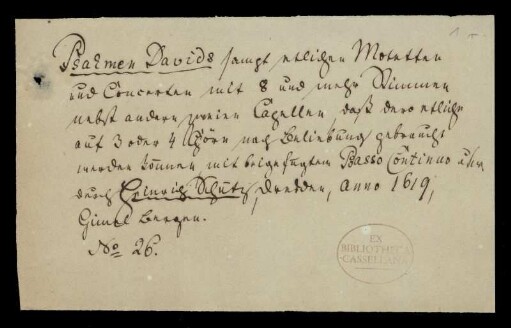 Psalmen Davids sampt etlichen Motetten
und Concerten mit 8 und mehr Stimmen
nebst andern zweien Capellen, daß dero etliche
auf 3 oder 4 Chörn nach Beliebung gebraucht
werden können mit beigefügtem Basso Continuo
durch Heinrich Schütz, Dresden, Anno 1619,
Gimel Bergen.
No 26.
EX
BIBLIOTHECA
CASSELLANA